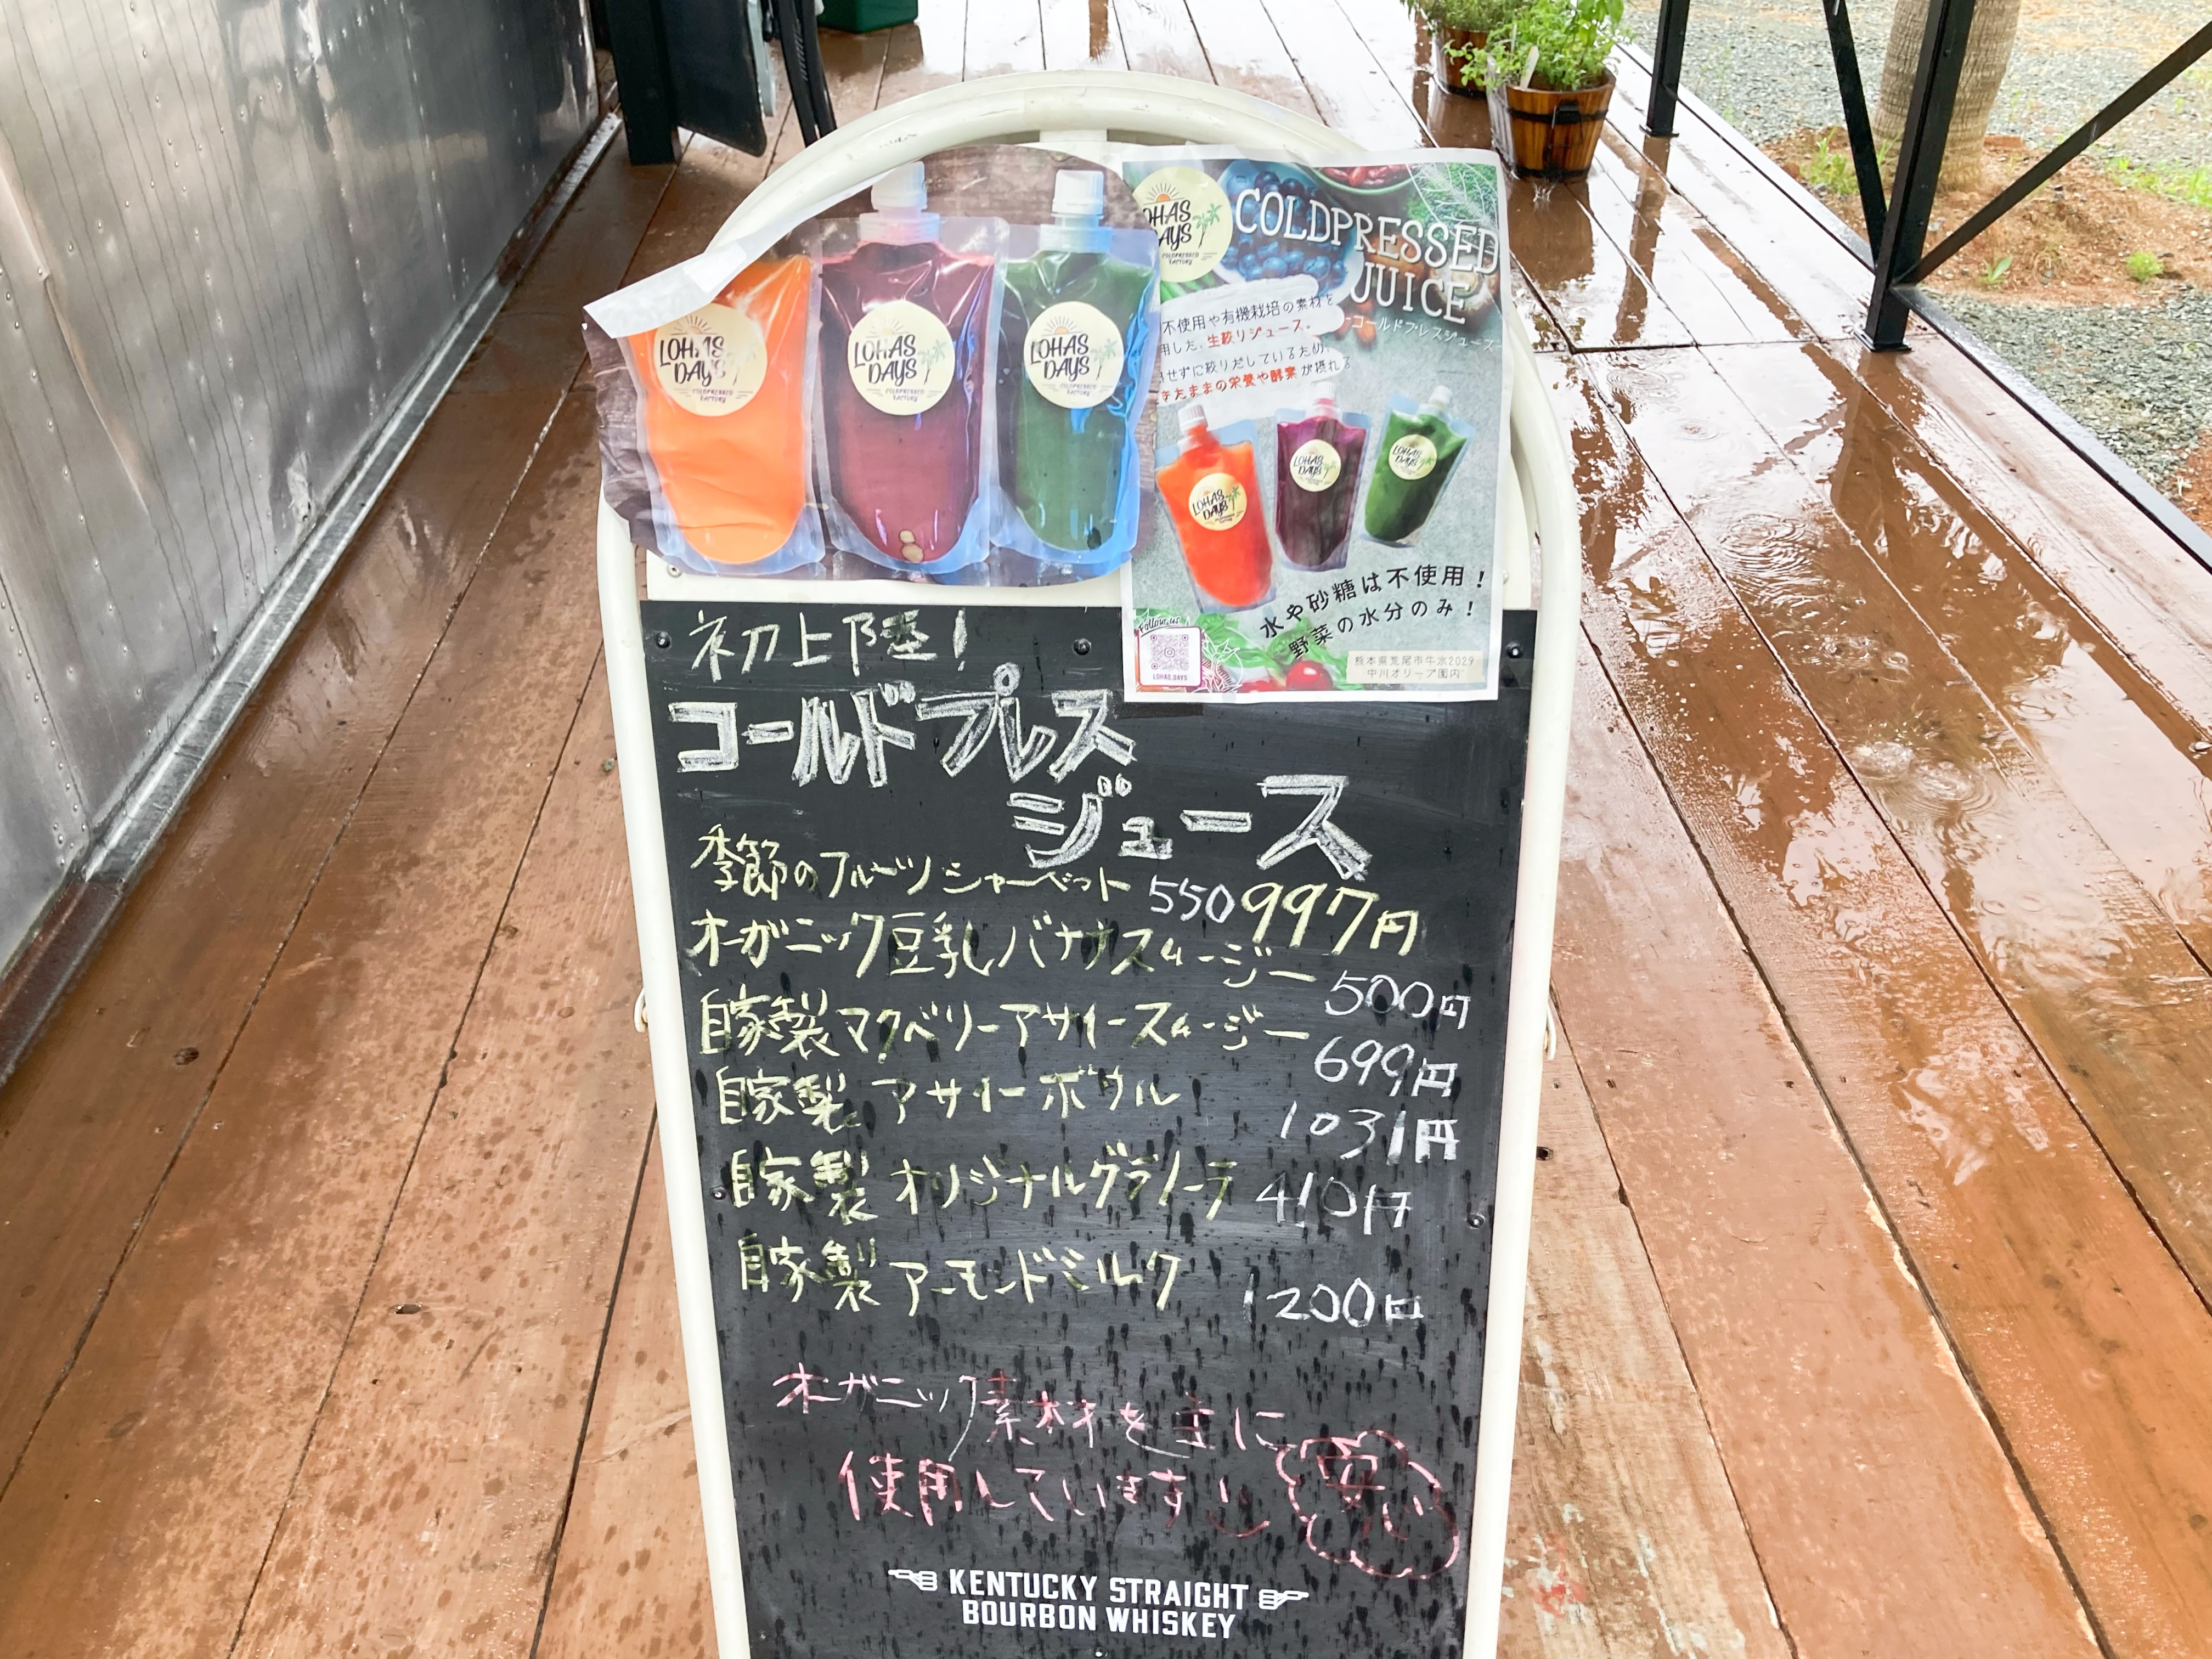 LOHAS
DAYS
COLDPRESSED
FACTORY
LOHAS
DAYS
COLDPRESSED
FACTORY
LOHAS
DAYS
COLDPRESSED
FACTORY
OHAS
AYS
COLDPRESSED
FACTORY
COLDPRESSED
JUICE
コールドプレスジュース
不使用や有機栽培の素材を
用した、生絞りジュース。
せずに絞りだしているため、
きたままの栄養や酵素が摂れる
LOHAS
DAYS
LOHAS
DAYS
LOHAS
DAYS
水や砂糖は不使用！
野菜の水分のみ！
Follow us
LOHAS.DAYS
熊本県荒尾市牛水2029
中川オリーブ園内
初上陸！
コールドプレス
ジュース
997円
季節のフルーツシャーベット 550
オーガニック豆乳バナナスムージー
500円
自家製マクベリーアサイースムージー
699円
自家製 アサイーボウル
1031円
自家製 オリジナルグラノーラ 410円
自家製 アーモンドミルク
1200円
オーガニック素材を主に
使用しています
安い
KENTUCKY STRAIGHT
BOURBON WHISKEY